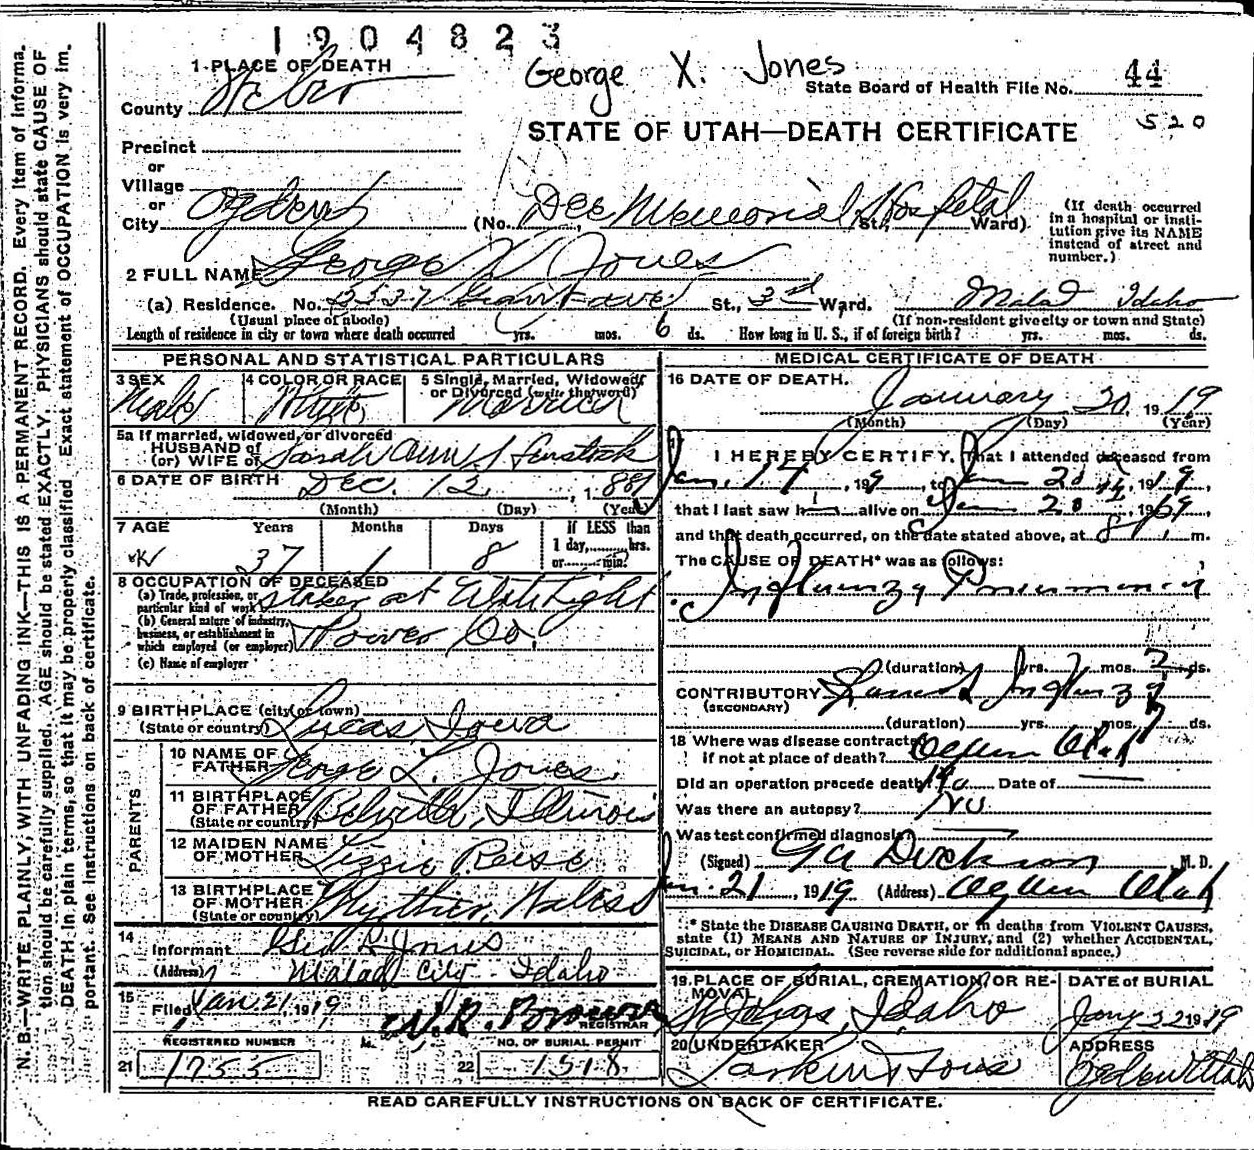 1904823
George X. Jones
1 PLACE OF DEATH
State Board of Health File No. 44
County Weber
STATE OF UTAH—DEATH CERTIFICATE 520
Precinct
or
Village
or
City Ogden (No. Dee Memorial Hospital St., Ward)
(If death occurred in a hospital or institution give its NAME instead of street and number.)
2 FULL NAME George X Jones
(a) Residence. No. Grant ave St., 3rd Ward. Malad Idaho
(Usual place of abode) (If non-resident give city or town and State)
Length of residence in city or town where death occurred yrs. mos. 6 ds. How long in U. S., if of foreign birth? yrs. mos. ds.
PERSONAL AND STATISTICAL PARTICULARS
3 SEX Male
4 COLOR OR RACE White
5 Single, Married, Widowed, or Divorced (write the word) Married
5a If married, widowed, or divorced
HUSBAND of
(or) WIFE of Sarah Ann
6 DATE OF BIRTH Dec. 12, 1881
(Month) (Day) (Year)
7 AGE Years Months Days If LESS than
37 1 8 1 day, hrs.
or min?
8 OCCUPATION OF DECEASED
(a) Trade, profession, or particular kind of work Stoker at Utah Light
(b) General nature of industry, business, or establishment in which employed (or employer) Power Co.
(c) Name of employer
9 BIRTHPLACE (city or town)
(State or country) Lucas, Iowa
PARENTS
10 NAME OF FATHER George L. Jones
11 BIRTHPLACE OF FATHER (State or country) Illinois
12 MAIDEN NAME OF MOTHER Lizzie Reese
13 BIRTHPLACE OF MOTHER (State or country) Wales
14 Informant Geo L Jones
(Address) Malad City Idaho
15 Filed Jan 21, 1919 REGISTRAR
REGISTERED NUMBER NO. OF BURIAL PERMIT
21 1755 22 1518
MEDICAL CERTIFICATE OF DEATH
16 DATE OF DEATH.
January 20, 1919
(Month) (Day) (Year)
I HEREBY CERTIFY, That I attended deceased from
Jan. 14, 199, to Jan 20, 1919,
that I last saw h alive on Jan 20, 19
and that death occurred, on the date stated above, at 8 m.
The CAUSE OF DEATH* was as follows:
Influenza Pneumonia
(duration) yrs. mos. 2 ds.
CONTRIBUTORY Influenza
(SECONDARY)
(duration) yrs. mos. 7 ds.
18 Where was disease contracted
If not at place of death? Ogden Utah
Did an operation precede death? No Date of
Was there an autopsy? No
Was test confirmed diagnosis?
(Signed) M. D.
Jan. 21, 1919 (Address) Ogden Utah
* State the DISEASE CAUSING DEATH, or in deaths from VIOLENT CAUSES,
state (1) MEANS AND NATURE OF INJURY, and (2) whether ACCIDENTAL,
SUICIDAL, or HOMICIDAL. (See reverse side for additional space.)
19 PLACE OF BURIAL, CREMATION, OR REMOVAL St Johns, Idaho
DATE of BURIAL Jany 22 1919
20 UNDERTAKER Larkin & Sons
ADDRESS Ogden Utah
READ CAREFULLY INSTRUCTIONS ON BACK OF CERTIFICATE.
N. B.—WRITE PLAINLY, WITH UNFADING INK—THIS IS A PERMANENT RECORD. Every item of informa-
tion should be carefully supplied. AGE should be stated EXACTLY. PHYSICIANS should state CAUSE OF
DEATH in plain terms, so that it may be properly classified. Exact statement of OCCUPATION is very im-
portant. See instructions on back of certificate.